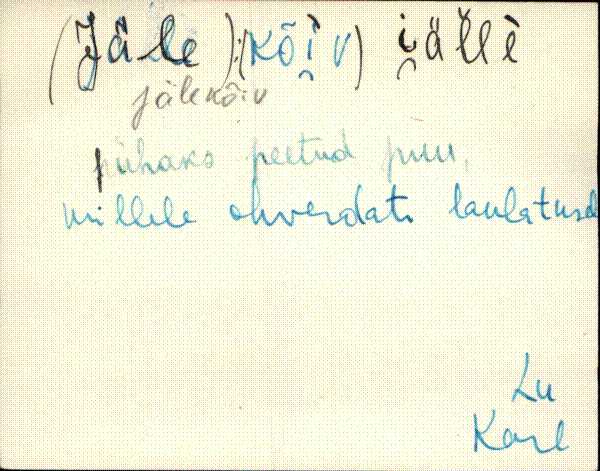 (Jäle):(kõi̯v) i̯äĺlè
jälekõiv
pühaks peetud puu,
millele ohverdati laulatusel
Lu
Karl